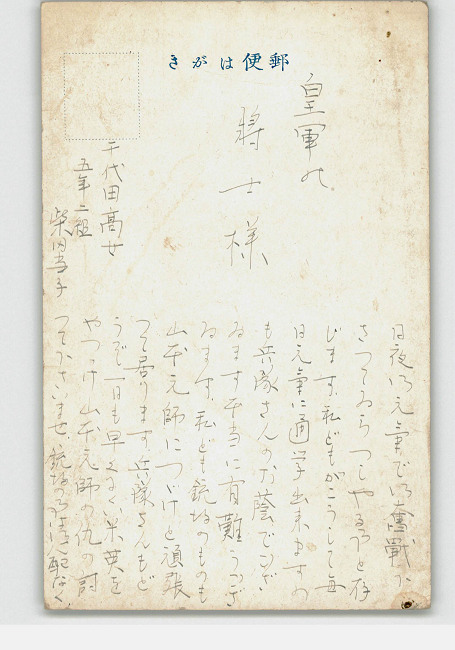 郵便はがき
皇軍の
将士様
千代田高女
五年二組
柴田
日夜御元気で御奮戦な
さつてゐらつしやる事と存
じます。私どもがかうして毎
日元気に通学出来ますの
も兵隊さんのお蔭でござ
ゐます。本当に有難うござ
ゐます。私ども銃後のものも
山本元帥につゞけと頑張
つて居ります。兵隊さんもど
うか一日も早くにくい米英を
やつつけ山本元帥の仇の討
つて下さいませ。銃後の心配なく